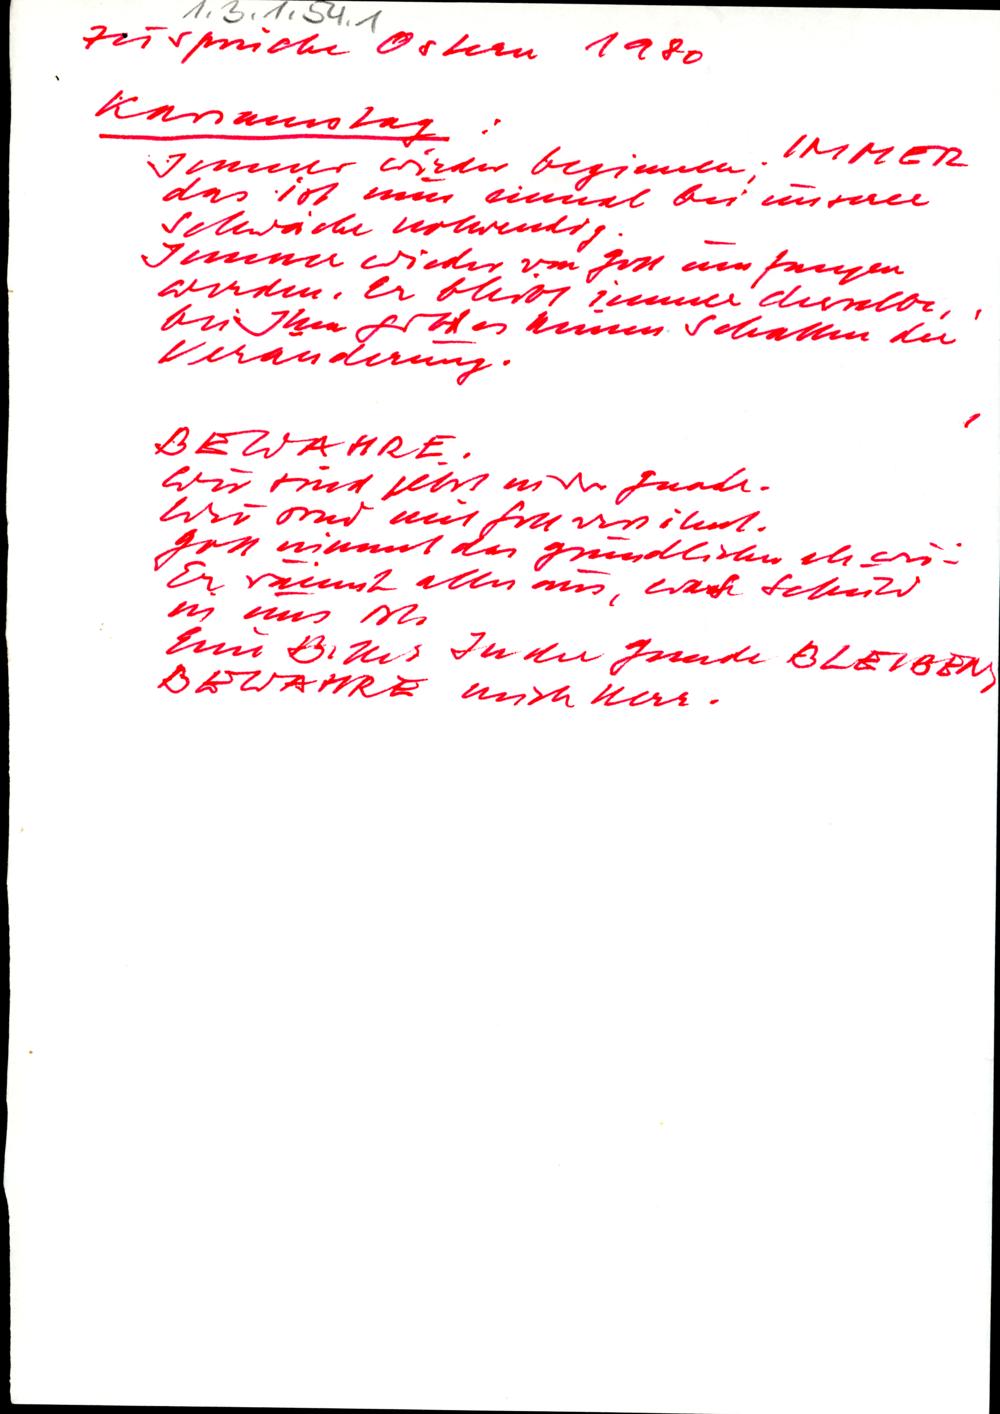 1.3.1.54.1
Zusprüche Ostern 1980
Karsamstag:
Immer wieder beginnen; IMMER
das ist nun einmal bei unserer
Schwäche notwendig.
Immer wieder von Gott umfangen
werden. Er bleibt immer derselbe,
bei Ihm gibt es keinen Schatten der
Veränderung.
BEWAHRE.
Wir sind jetzt in der Gnade.
Wir sind mit Gott versöhnt.
Gott nimmt das gründlicher als wir.
Er räumt alles aus, was Schuld
in uns ist.
Eine Bitte: In der Gnade BLEIBEN,
BEWAHRE mich Herr.